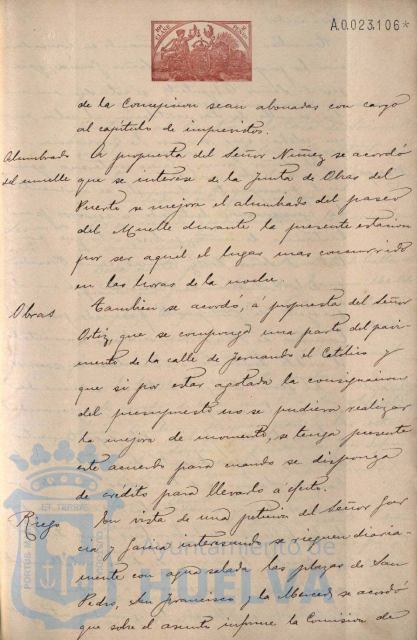 A.0.023.106*
de la Concepcion sean abonadas con cargo
al capítulo de imprevistos.
Alumbrado
del muelle
A propuesta del Señor Nuñez se acordó
que se interese de la Junta de Obras del
Puerto se mejore el alumbrado del paseo
del Muelle durante la presente estacion
por ser aquel el lugar mas concurrido
en las horas de la noche.
Obras
Tambien se acordó, á propuesta del Señor
Ortiz, que se componga una parte del pavi-
mento de la calle de Fernando el Católico y
que si por estar agotada la consignacion
del presupuesto no se pudiera realizar
la mejora de momento, se tenga presente
este acuerdo para cuando se disponga
de crédito para llevarlo á efecto.
Riego
En vista de una peticion del Señor Gar
cia y Garcia interesando se rieguen diaria-
mente con agua salada las plazas de San
Pedro, San Francisco y la Merced, se acordó
que sobre el asunto informe la Comision de
Ayuntamiento de
HUELVA